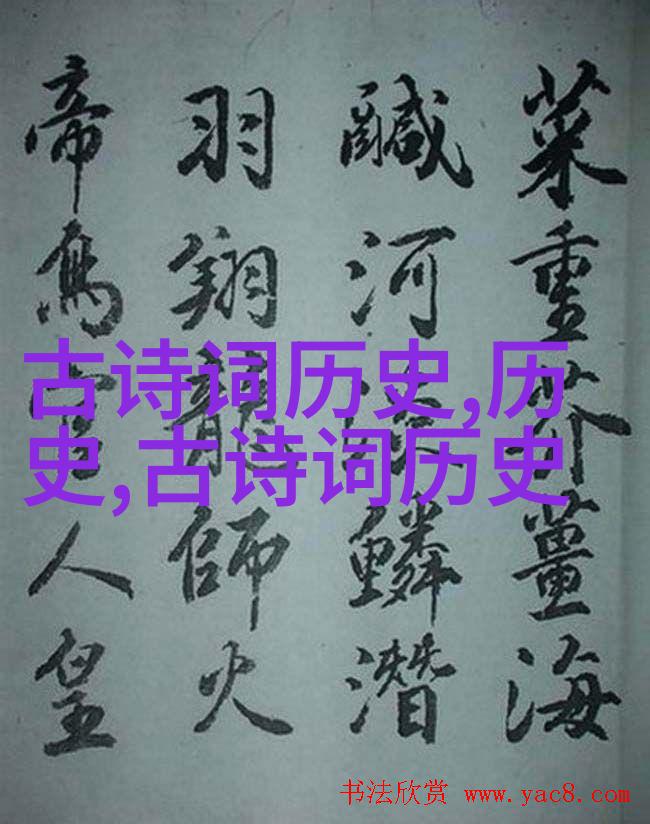 菜重芥薑海
鹹河鱗潛
羽翔龍師火
帝鳥官人皇
古诗词历史,历
史,古诗词历史
书法欣赏 www.yac8.com